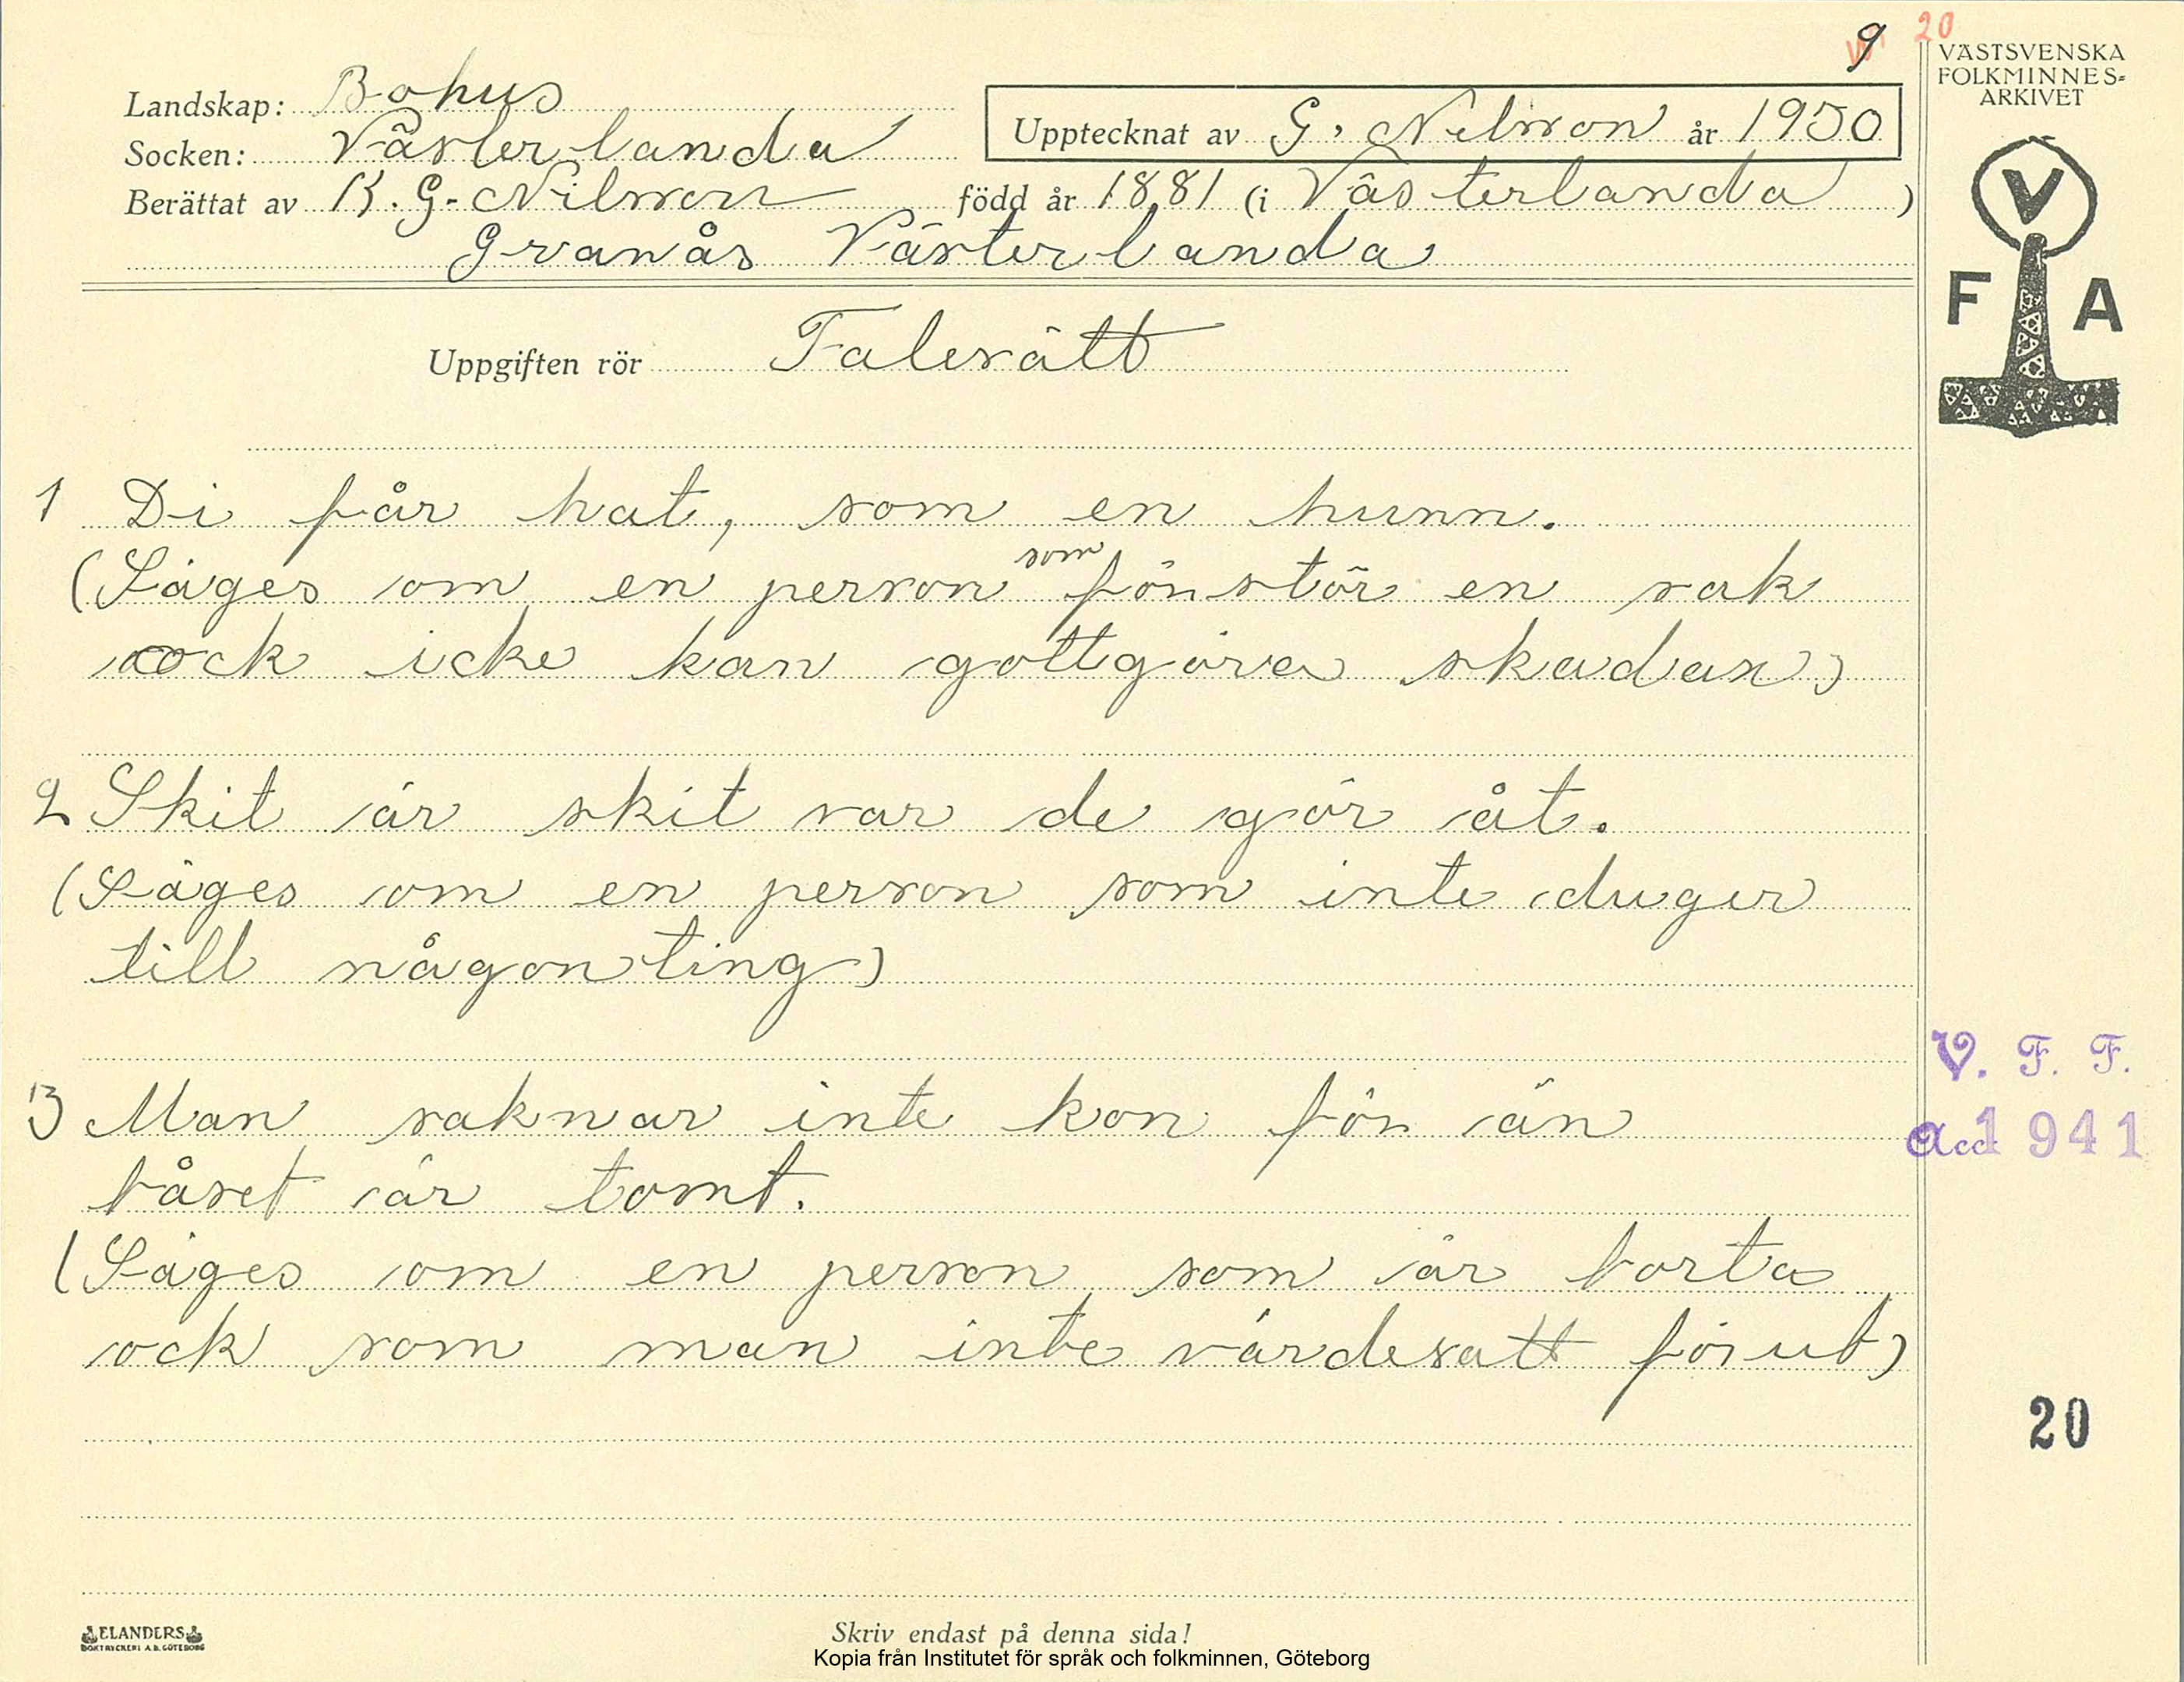 9 20
VÄSTSVENSKA
FOLKMINNES-
ARKIVET
Landskap: Bohus
Upptecknat av G. Nilsson år 1950
Socken: Västerlanda
Berättat av K. G. Nilsson född år 1881 (i Västerlanda)
Granås Västerlanda
V
F A
Uppgiften rör Talesätt
1 Di får hat, som en hunn.
(Säges om en person som förstör en sak
ock icke kan gottgöra skadan)
2 Skit är skit var de gör åt.
(Säges om en person som inte duger
till någonting)
V. F. F.
3 Man saknar inte kon för än
Acc 1941
båset är tomt.
(Säges om en person som är borta
ock som man inte värdesatt förut)
20
ELANDERS
BOKTRYCKERI A.B. GÖTEBORG
Skriv endast på denna sida!
Kopia från Institutet för språk och folkminnen, Göteborg